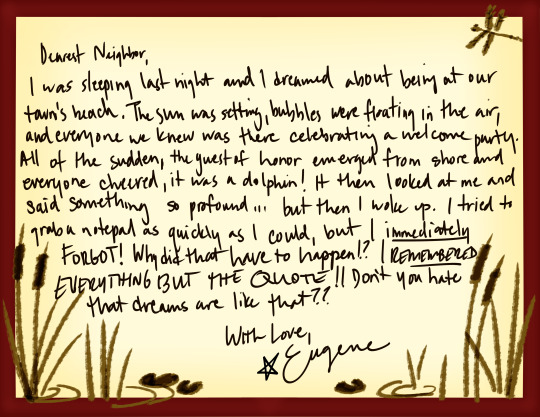 Dearest Neighbor,
I was sleeping last night and I dreamed about being at our
town's beach. The sun was setting, bubbles were floating in the air,
and everyone we knew was there celebrating a welcome party.
All of the sudden, the guest of honor emerged from shore and
everyone cheered, it was a dolphin! It then looked at me and
said something so profound... but then I woke up. I tried to
grab a notepad as quickly as I could, but I immediately
FORGOT! Why did that have to happen!? I REMEMBERED
EVERYTHING BUT THE QUOTE!! Don't you hate
that dreams are like that??
With Love,
Eugene